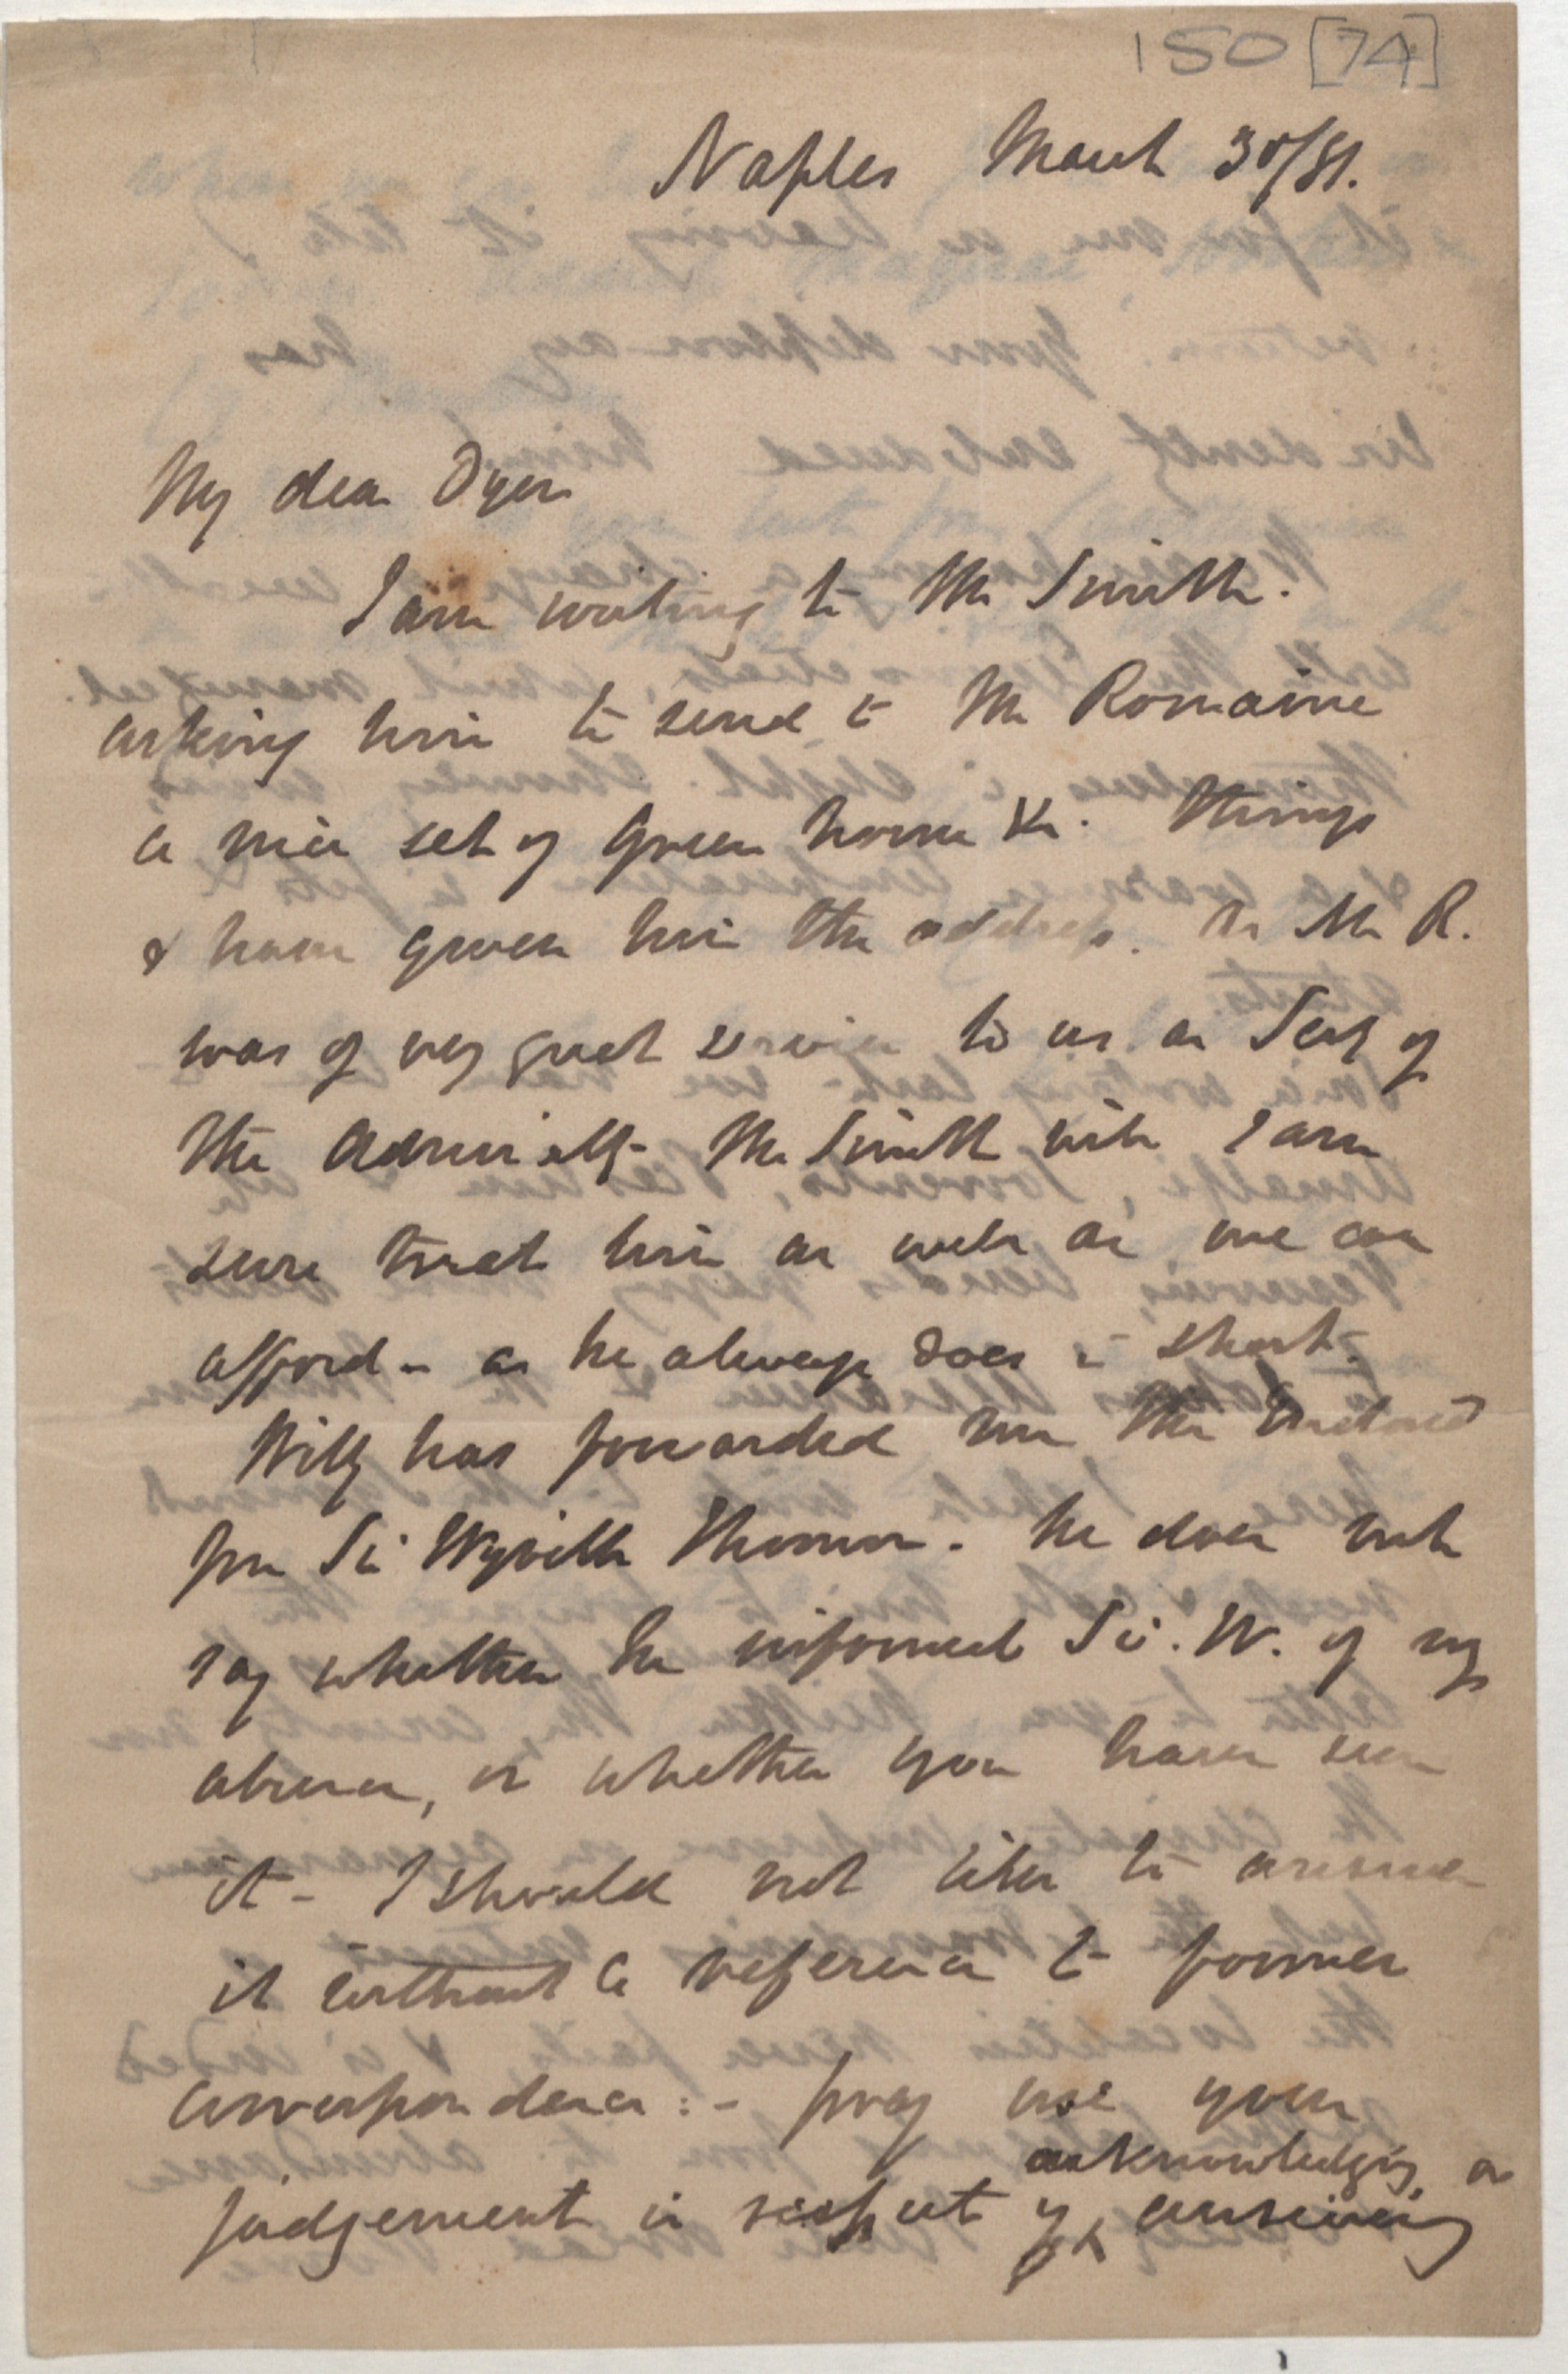 150 [74]
Naples March 30/81.
My dear Dyer
I am writing to Mr Smith.
asking him to send to Mr Romaine
a nice set of Green house &c. things
& have given him the address. As Mr R.
was of very great service to us as Secy of
the Admiralty Mr Smith will I am
sure treat him as well as we can
afford - as he always does in short.
Willy has forwarded me the enclosed
from Sir Wyville Thomson. he does not
say whether he informed Sir. W. of my
absence, or whether you have seen
it - I should not like to answer
it without a reference to former
correspondence : - pray use your
judgement in respect of acknowledging or
answering